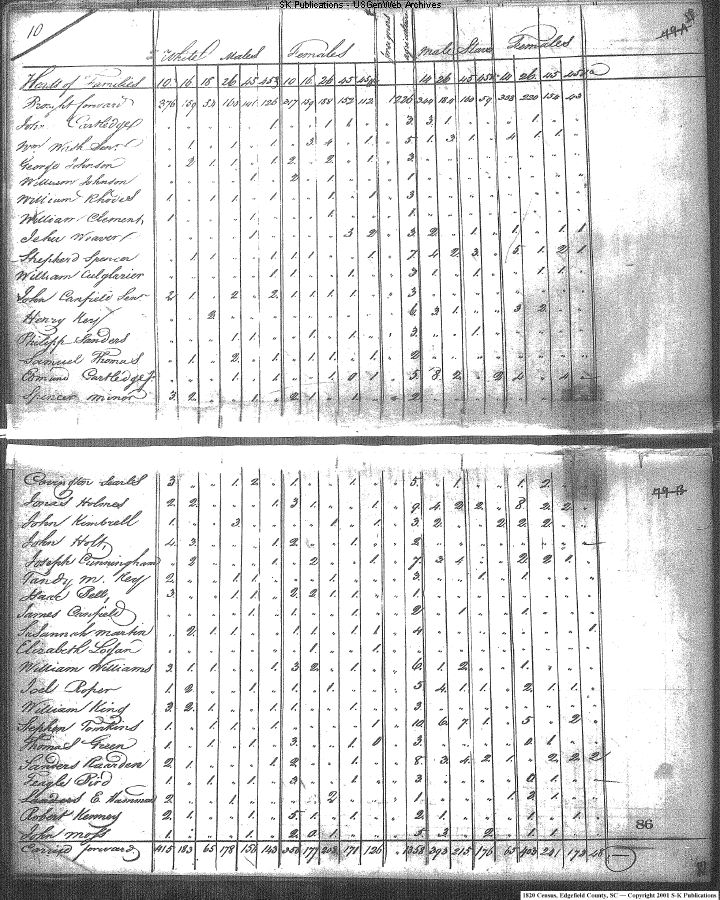 SK Publications - USGenWeb Archives
10
49-A
White Males Females foreigners agriculture Male Slaves Females
Heads of Families 10 16 18 26 45 45 10 16 26 45 45 14 26 45 45 14 26 45 45
Brought forward 376 159 54 163 141 126 317 159 188 152 112 1226 344 184 160 59 338 220 154 43
John Cartledge 1 1 3 3 1 1
Wm Wish Sen. 1 1 1 3 4 1 5 1 3 1 4 1 1
George Johnson 2 1 1 1 2 2 1 3
William Johnson 1 2 1 1
William Rhodes 1 1 1 1 1 1 3
William Clement 1 1 1 1
John Weaver 1 3 2 3 2 1 1 1 1
Shepherd Spencer 1 1 1 1 1 1 1 7 4 2 3 5 1 2 1
William Culglazier 1 1 1 1 3 1 1 1 1
John Canfield Sen 2 1 2 2 1 1 1 1 3
Henry Key 2 6 3 1 3 2
Philipp Sanders 1 1 1 1 3 1
Samuel Thomas 1 2 1 1 1 1 2
Edmund Cartledge 1 1 1 0 1 5 8 2 2 4 4
Spencer Minor 3 2 1 2 1 1 2
49-B
Covington Searls 3 1 2 1 1 5 1 1 2
Jonas Holmes 2 2 1 3 1 1 9 4 2 2 8 2 2
John Kimbrell 1 3 1 1 3 2 2 2 2
John Holt 4 3 1 2 1 2
Joseph Cunningham 2 1 2 1 7 3 4 2 2 1
Tandy M. Key 2 1 1 1 3 1 1
Isaac Bell 3 1 1 2 2 1 1 1
James Canfield 1 1 1 2 1 1
Susannah Martin 2 1 1 1 1 1 4 1
Elizabeth Logan 1 1
William Williams 3 1 1 1 3 2 1 6 1 2 1
Joel Roper 1 2 1 1 1 5 4 1 1 2 1 1
William King 3 2 1 1 1 1 3
Stephen Tomkins 1 1 1 1 1 10 6 7 1 5 2
Thomas Green 1 1 1 3 1 0 3 0 1
Sanders Raarden 2 1 1 2 1 8 3 4 2 1 2 2 2
Teagle Bird 1 1 1 3 1 3 0 1
E. 2 1 2 1 1 2 1
Robert Kenney 2 1 1 5 1 1 2 1 1 1
John Moss 1 1 2 0 1 5 3 2 1 1
Carried forward 415 183 65 178 156 143 350 177 203 171 126 1358 393 215 176 65 403 241 173 48
86
1820 Census, Edgefield County, SC — Copyright 2001 S-K Publications